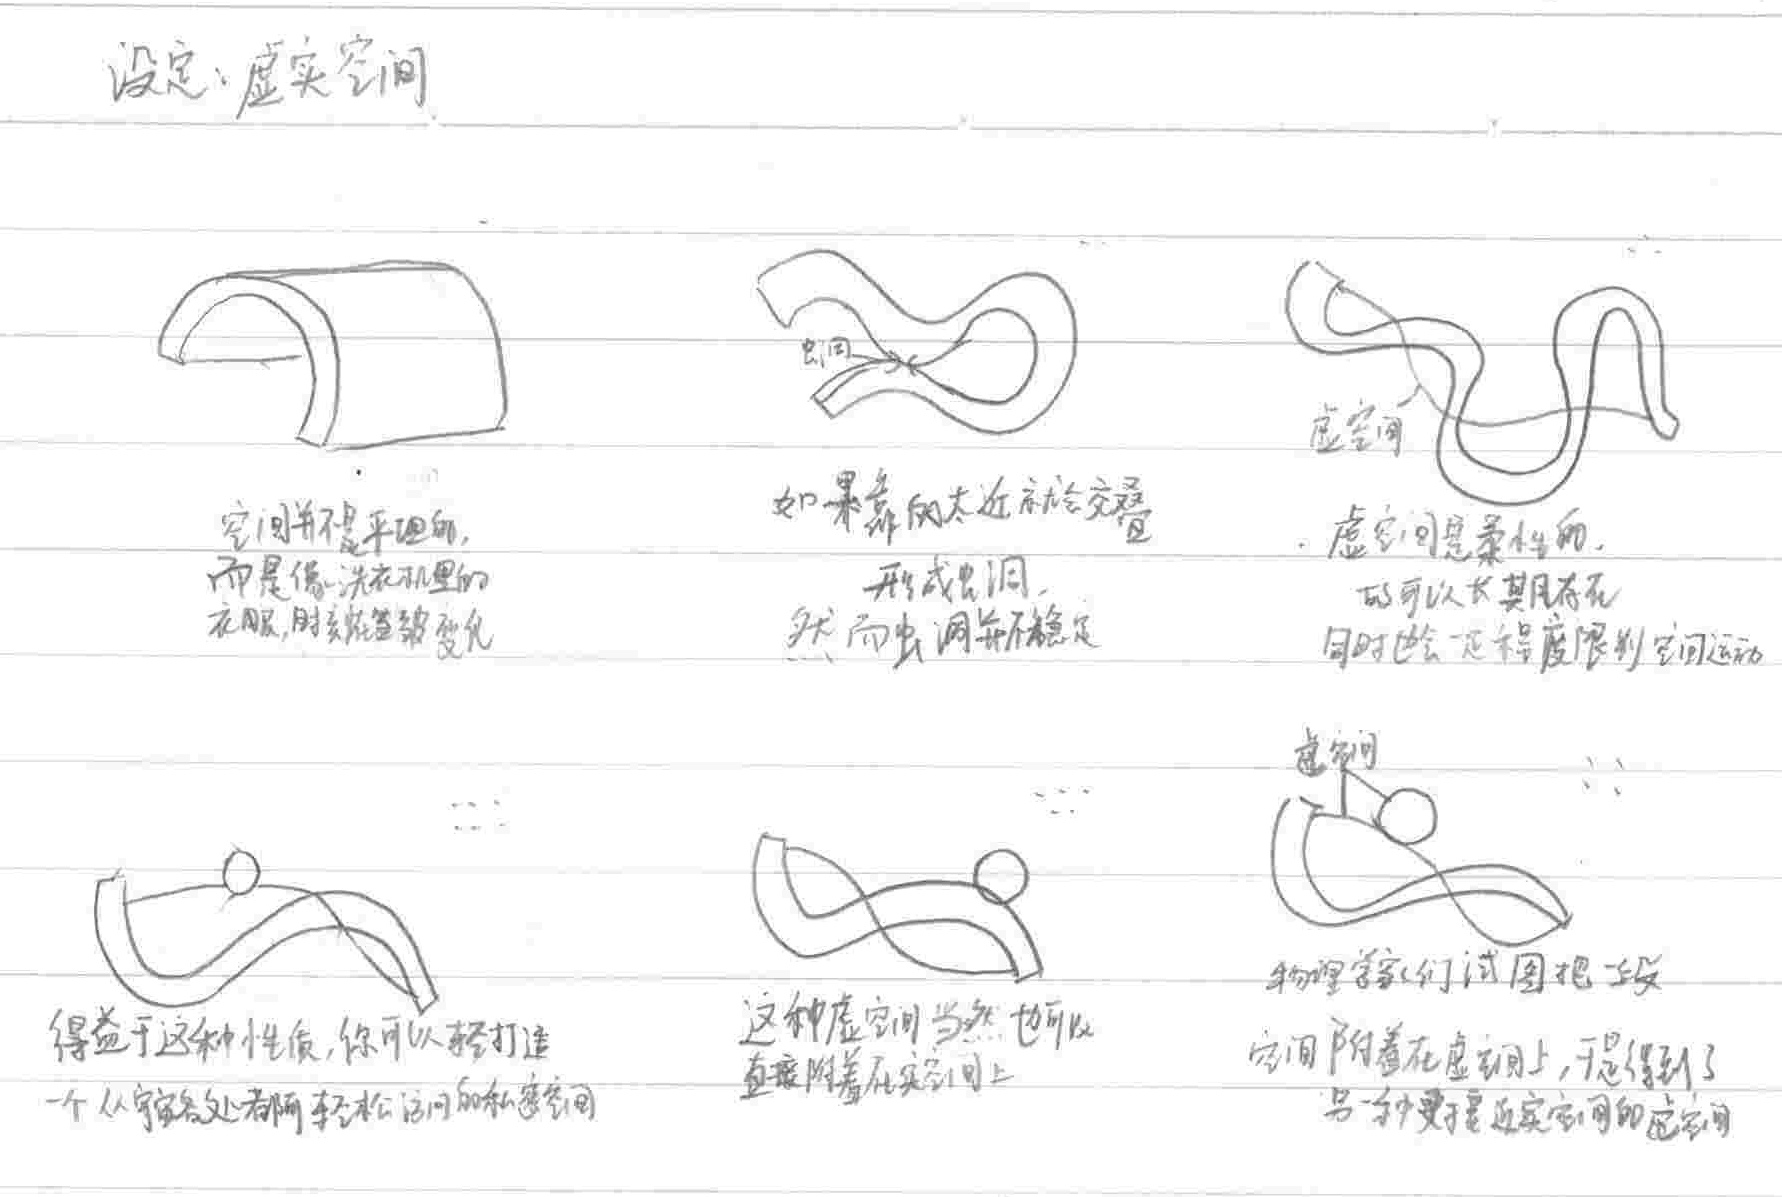 设定：虚实空间
虫洞
虚空间
空间并不是平坦的，
而是像洗衣机里的
衣服，时刻褶皱变化
如果靠的太近就会交叠
形成虫洞，
然而虫洞并不稳定
虚空间是柔性的，
故可以长期存在
同时也会一定程度限制空间运动
虚空间
得益于这种性质，你可以轻打造
一个从宇宙各处都可轻松访问的私密空间
这种虚空间当然也可以
直接附着在实空间上
物理学家们试图把一段
空间附着在虚空间上，于是得到了
另一种更接近实空间的虚空间